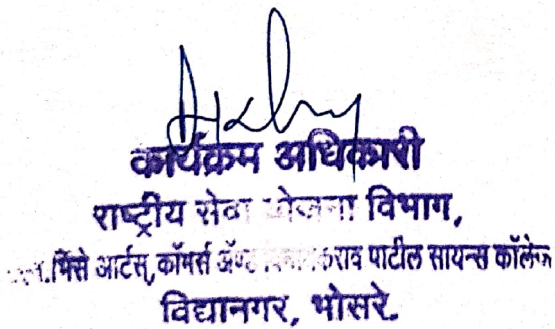 कार्यक्रम अधिकारी
राष्ट्रीय सेवा योजना विभाग,
भिसे आर्टस्, कॉमर्स ॲण्ड विनायकराव पाटील सायन्स कॉलेज
विद्यानगर, भोसरे.